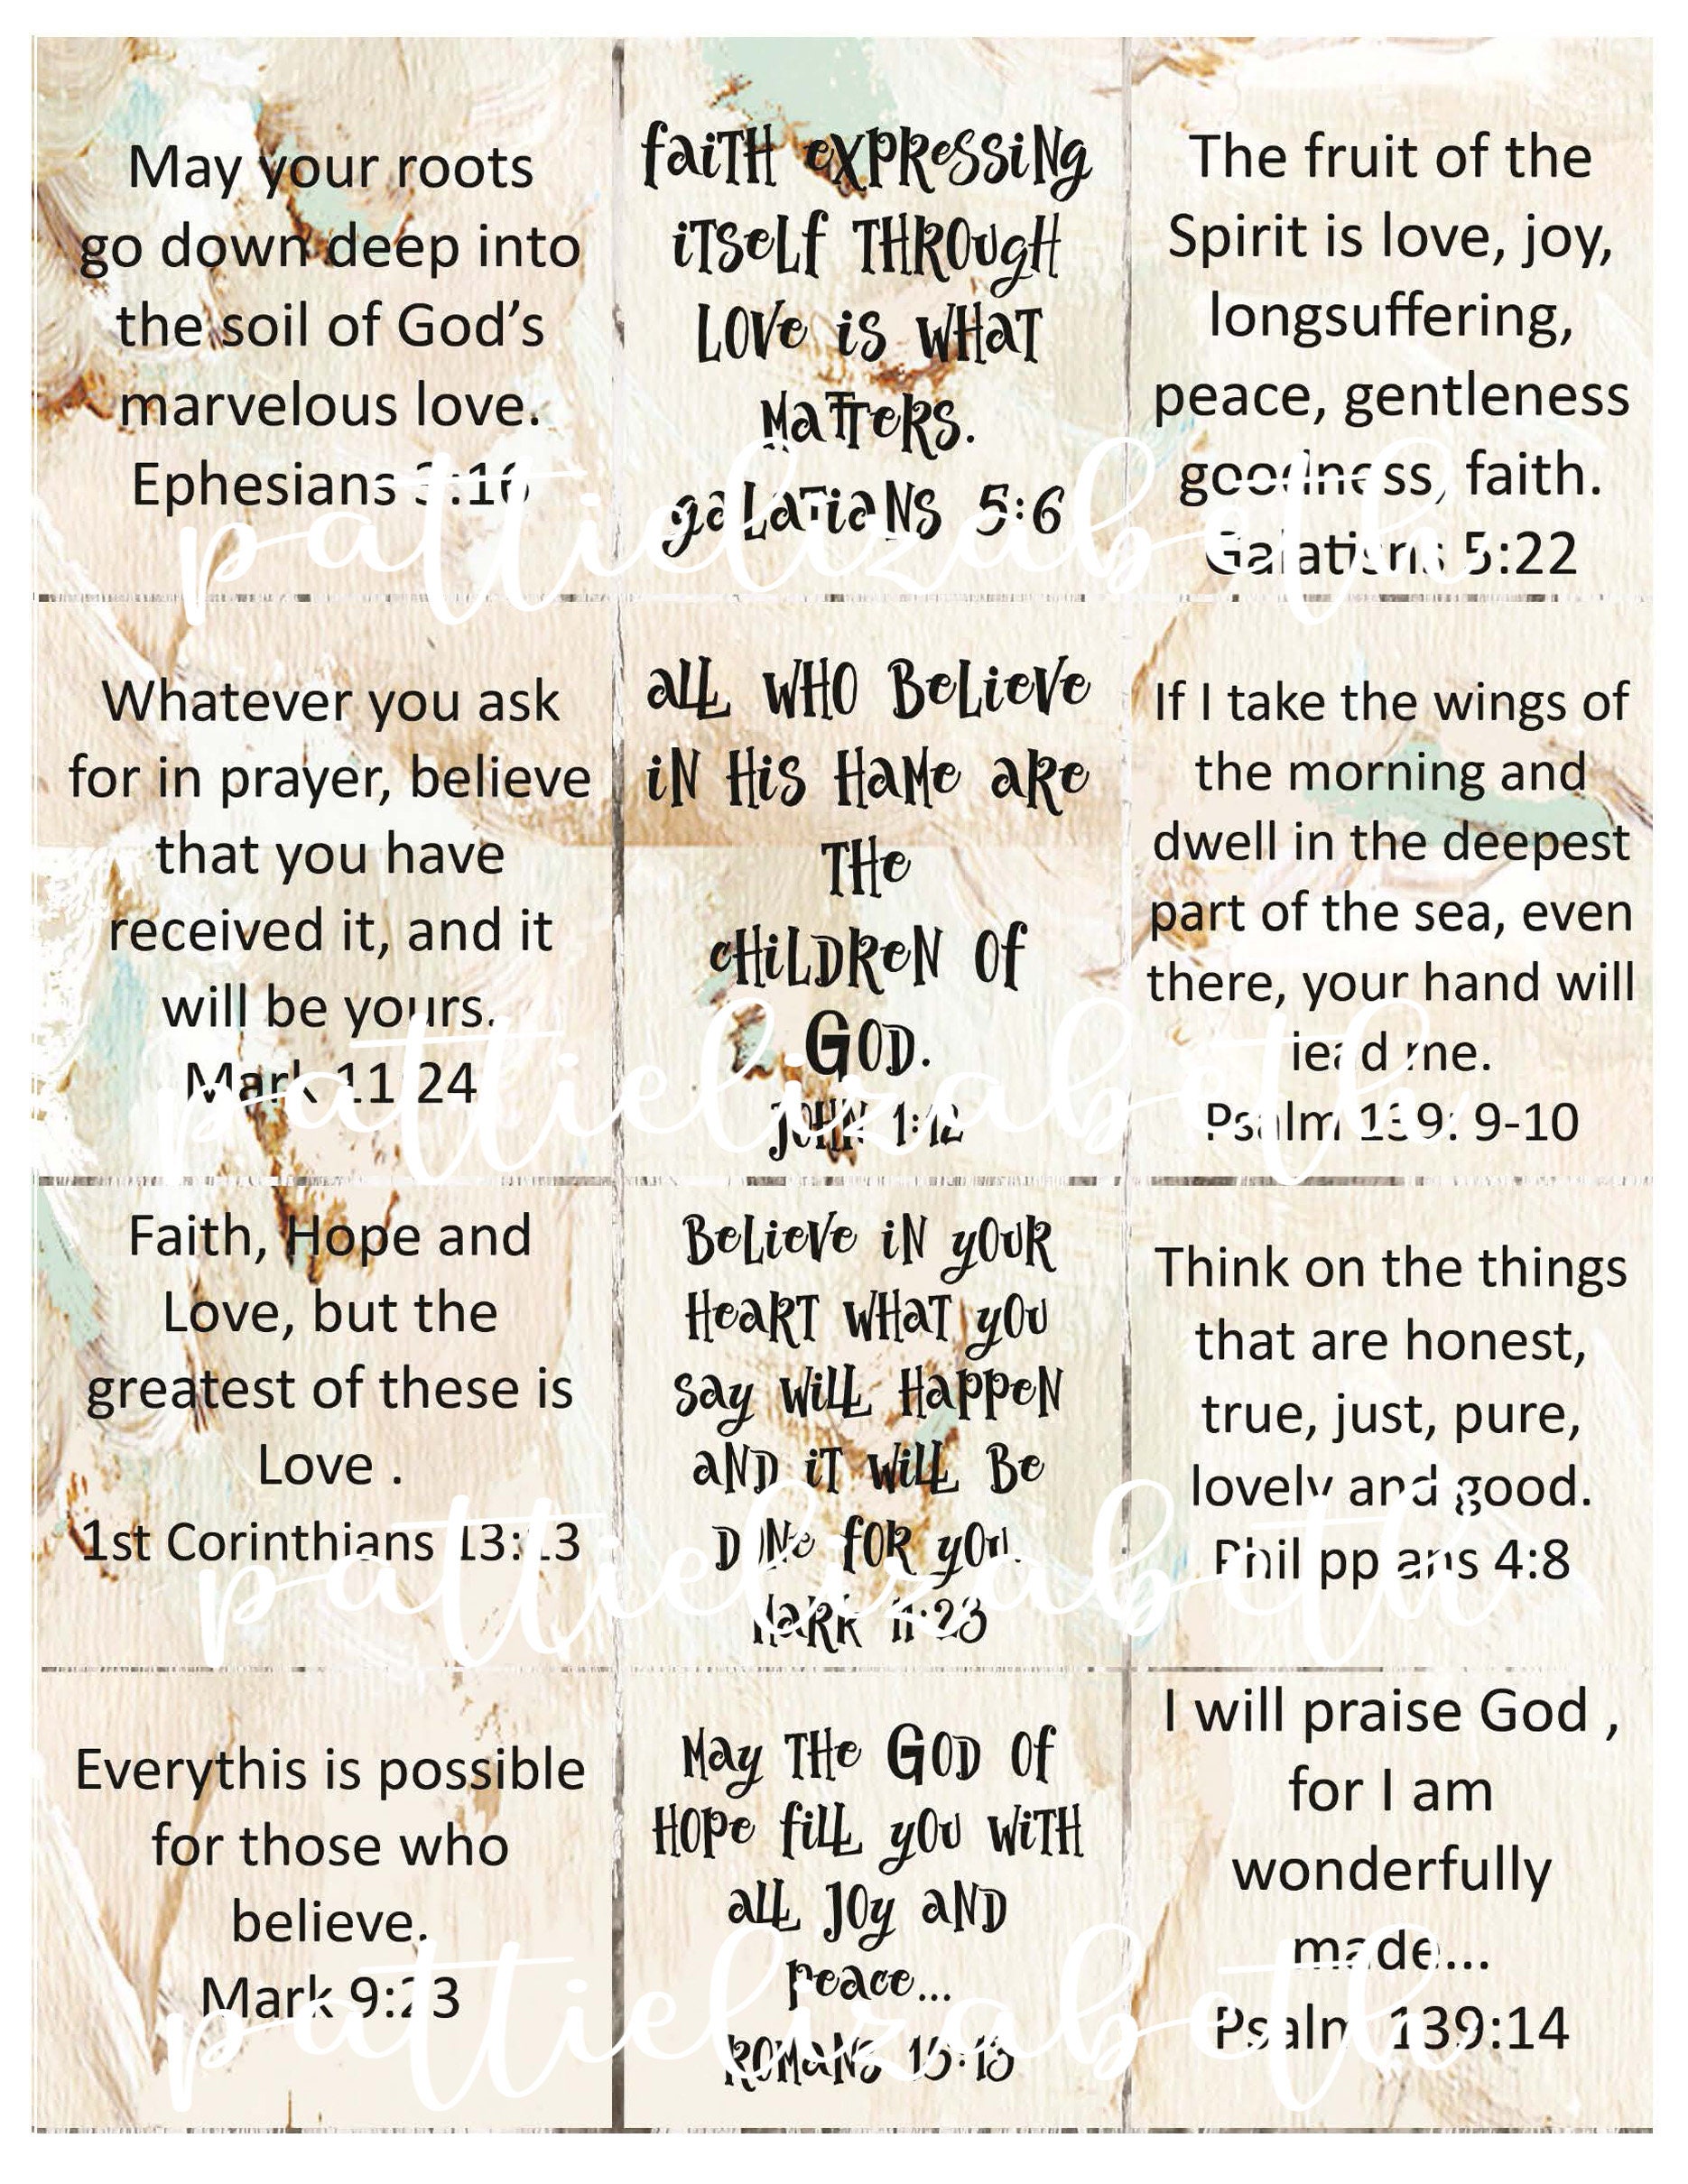 May your roots
go down deep into
the soil of God's
marvelous love.
Ephesians 3:16
faith expressing
itself through
love is what
matters.
galatians 5:6
The fruit of the
Spirit is love, joy,
longsuffering,
peace, gentleness
goodness, faith.
Galatians 5:22
pattielizabeth
Whatever you ask
for in prayer, believe
that you have
received it, and it
will be yours.
Mark 11:24
all who Believe
in His Hame are
the
children of
God.
John 1:12
If I take the wings of
the morning and
dwell in the deepest
part of the sea, even
there, your hand will
lead me.
Psalm 139: 9-10
pattielizabeth
Faith, Hope and
Love, but the
greatest of these is
Love .
1st Corinthians 13:13
Believe in your
Heart what you
say will Happen
and it will Be
Done for you.
Mark 11:23
Think on the things
that are honest,
true, just, pure,
lovely and good.
Philippians 4:8
pattielizabeth
Everythis is possible
for those who
believe.
Mark 9:23
May the God of
Hope fill you with
all Joy and
Peace...
Romans 15:13
I will praise God ,
for I am
wonderfully
made...
Psalm 139:14
pattielizabeth